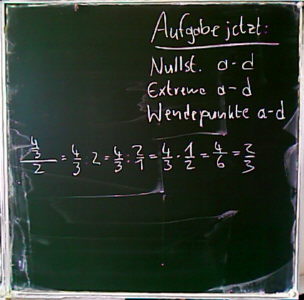 Aufgabe jetzt:
Nullst. a-d
Extrema a-d
Wendepunkte a-d
4/3/2 = 4/3 : 2 = 4/3 : 2/1 = 4/3 · 1/2 = 4/6 = 2/3